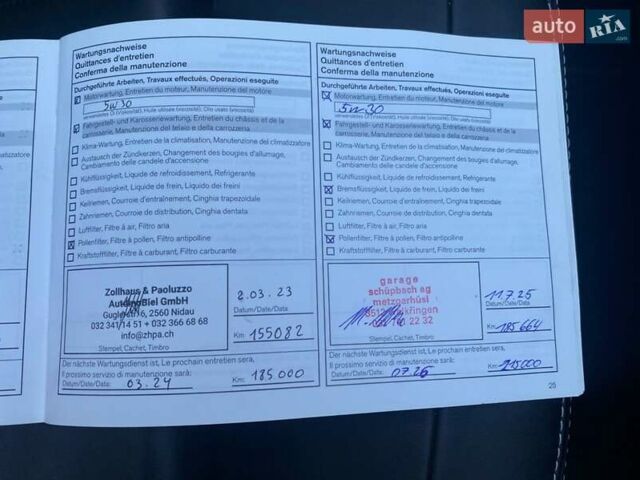 auto RIA.com
Wartungsnachweise
Quittances d'entretien
Conferma della manutenzione
Durchgeführte Arbeiten, Travaux effectués, Operazioni eseguite
Motorwartung, Entretien du moteur, Manutenzione del motore
5W30
verwendetes Öl (Viskosität), Huile utilisée (viscosité), Olio usato (viscosità)
Fahrgestell- und Karosseriewartung, Entretien du châssis et de la
carrosserie, Manutenzione del telaio e della carrozzeria
Klima-Wartung, Entretien de la climatisation, Manutenzione del climatizzatore
Austausch der Zündkerzen, Changement des bougies d'allumage,
Cambiamento delle candele d'accensione
Kühlflüssigkeit, Liquide de refroidissement, Refrigerante
Bremsflüssigkeit, Liquide de frein, Liquido dei freini
Keilriemen, Courroie d'entraînement, Cinghia trapezoidale
Zahnriemen, Courroie de distribution, Cinghia dentata
Luftfilter, Filtre à air, Filtro aria
Pollenfilter, Filtre à pollen, Filtro antipolline
Kraftstofffilter, Filtre à carburant, Filtro carburante
Zollhaus & Paoluzzo
AutoingBiel GmbH
Guglerstr. 6, 2560 Nidau
032 341 14 51 + 032 366 68 68
info@zhpa.ch
Stempel, Cachet, Timbro
2.03.23
Datum/Date/Data
Km: 155082
Der nächste Wartungsdienst ist, Le prochain entretien sera,
Il prossimo servizio di manutenzione sarà:
Datum/Date/Data: 03.24 Km: 185000
Wartungsnachweise
Quittances d'entretien
Conferma della manutenzione
Durchgeführte Arbeiten, Travaux effectués, Operazioni eseguite
Motorwartung, Entretien du moteur, Manutenzione del motore
5W-30
verwendetes Öl (Viskosität), Huile utilisée (viscosité), Olio usato (viscosità)
Fahrgestell- und Karosseriewartung, Entretien du châssis et de la
carrosserie, Manutenzione del telaio e della carrozzeria
Klima-Wartung, Entretien de la climatisation, Manutenzione del climatizzatore
Austausch der Zündkerzen, Changement des bougies d'allumage,
Cambiamento delle candele d'accensione
Kühlflüssigkeit, Liquide de refroidissement, Refrigerante
Bremsflüssigkeit, Liquide de frein, Liquido dei freini
Keilriemen, Courroie d'entraînement, Cinghia trapezoidale
Zahnriemen, Courroie de distribution, Cinghia dentata
Luftfilter, Filtre à air, Filtro aria
Pollenfilter, Filtre à pollen, Filtro antipolline
Kraftstofffilter, Filtre à carburant, Filtro carburante
garage
schüpbach ag
metzgerhüsi
22 32
Stempel, Cachet, Timbro
11.7.25
Datum/Date/Data
Km: 185664
Der nächste Wartungsdienst ist, Le prochain entretien sera,
Il prossimo servizio di manutenzione sarà:
Datum/Date/Data: 07.26 Km: 215000
25